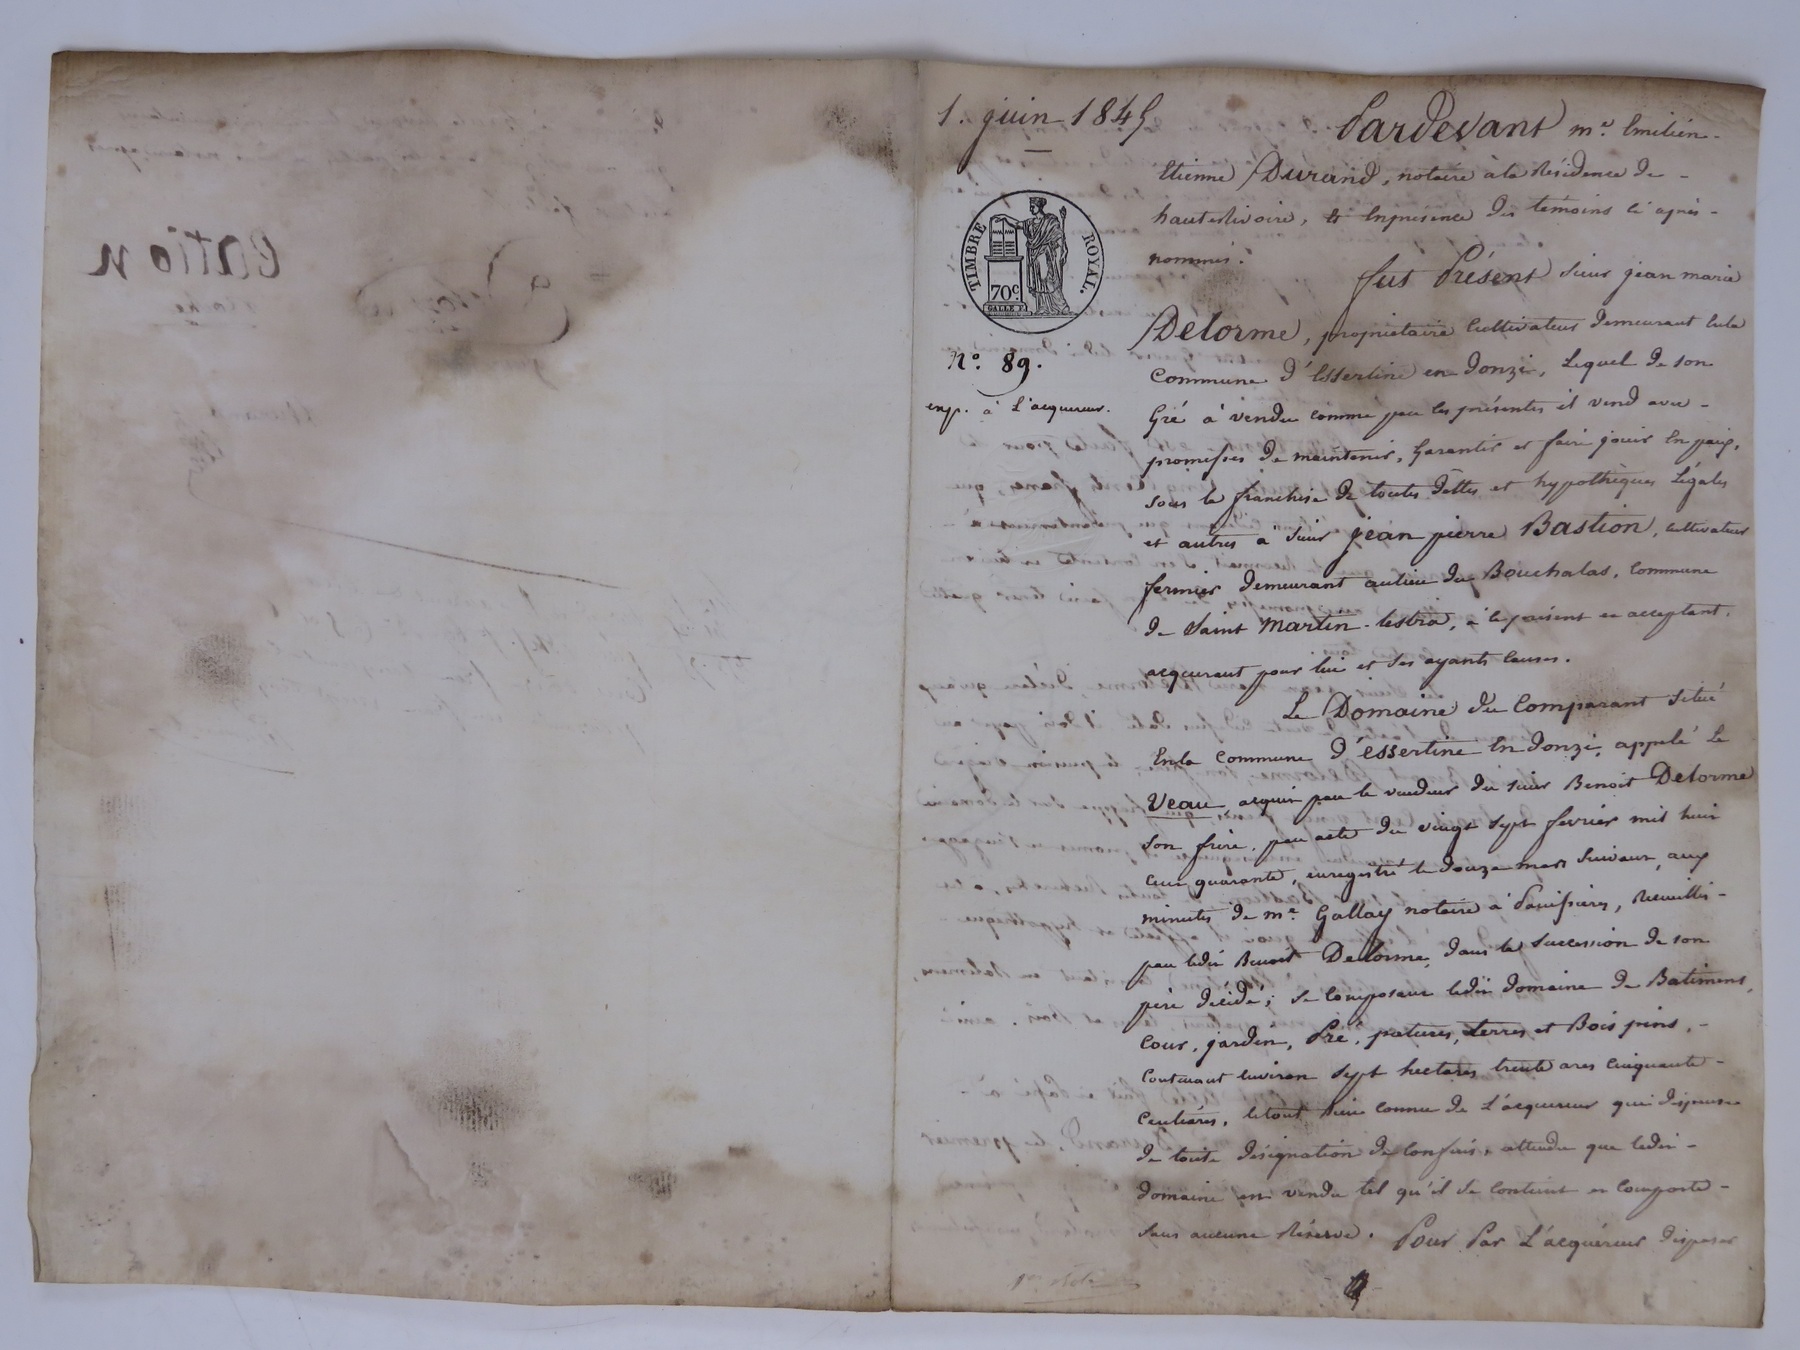 1. juin 1845
TIMBRE ROYAL.
70c.
N.o 89.
exp. à L'acquereur.
Pardevant m.e Emilien-
Etienne Durand, notaire à la Résidence de -
hauterivoire, & En présence des temoins ci après -
nommés.
fut Présent Sieur jean marie
Delorme, propriétaire Cultivateur demeurant En la
Commune d'Essertine en donzi, Lequel de son
Gré à vendu comme par les présentes il vend avec -
promesses de maintenir, Garantir et faire jouir En paix,
sous la franchise de toutes dettes et hypothèques Légales
et autres a Sieur jean pierre Bastion, cultivateur
fermier demeurant au lieu du Bouchalas, Commune
de Saint Martin-lestra, à ce présent et acceptant,
acquerant pour lui et ses ayants Causes.
Le Domaine du Comparant Situé
En la Commune d'essertine En donzi, appelé Le
Veau, acquis par le vendeur du sieur Benoit Delorme
son frère, par acte du vingt sept fevrier mil huit
cent quarante, enregistré le douze mars Suivant, aux
minutes de m.e Gallay notaire à Panissieres, Recueilli -
par ledit Benoit Delorme, dans la Succession de son
père décédé; se Composant ledit domaine de Batimens,
Cour, jardin, Pré, patures, terres et Bois pins, -
Contenant Environ Sept hectares trente ares Cinquante -
Centiares, le tout bien connu de L'acquereur qui dispense
de toute désignation de Confins, attendu que ledit -
domaine est vendu tel qu'il se Contient et Comporte -
Sans aucune Réserve. Pour Par L'acquéreur disposer